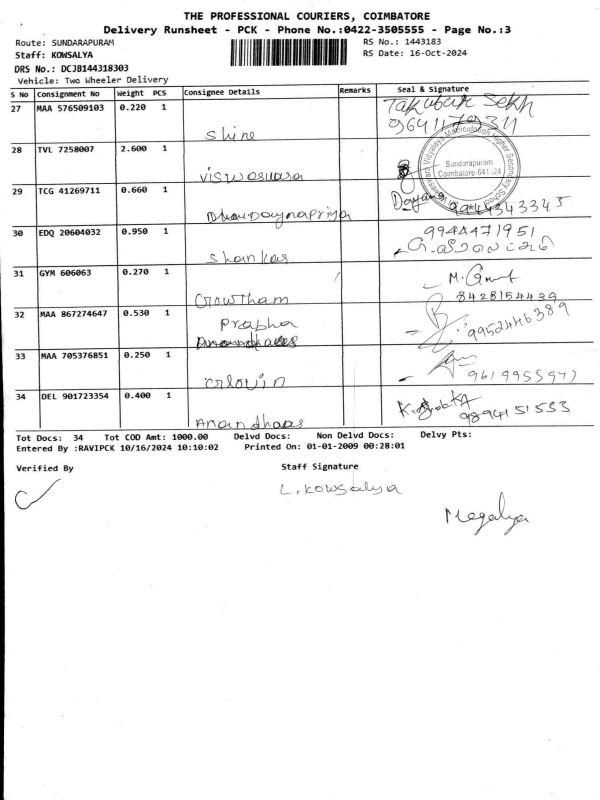 THE PROFESSIONAL COURIERS, COIMBATORE
Delivery Runsheet - PCK - Phone No.:0422-3505555 - Page No.:3
Route: SUNDARAPURAM RS No.: 1443183
Staff: KOWSALYA RS Date: 16-Oct-2024
DRS No.: DCJB144318303
Vehicle: Two Wheeler Delivery
S No Consignment No Weight PCS Consignee Details Remarks Seal & Signature
27 MAA 576509103 0.220 1
Shine
28 TVL 7258007 2.600 1
Matriculation Higher Secondary School
Sundarapuram
Coimbatore-641 024
Viswaswara
29 TCG 41269711 0.660 1
30 EDQ 20604032 0.950 1 9944471951
Shankar
31 GYM 606063 0.270 1
Gowtham 8428154439
32 MAA 867274647 0.530 1
Prabha 9952446389
33 MAA 705376851 0.250 1
34 DEL 901723354 0.400 1
9894151533
Tot Docs: 34 Tot COD Amt: 1000.00 Delvd Docs: Non Delvd Docs: Delvy Pts:
Entered By :RAVIPCK 10/16/2024 10:10:02 Printed On: 01-01-2009 00:28:01
Verified By Staff Signature
L. Kowsalya
Megalya